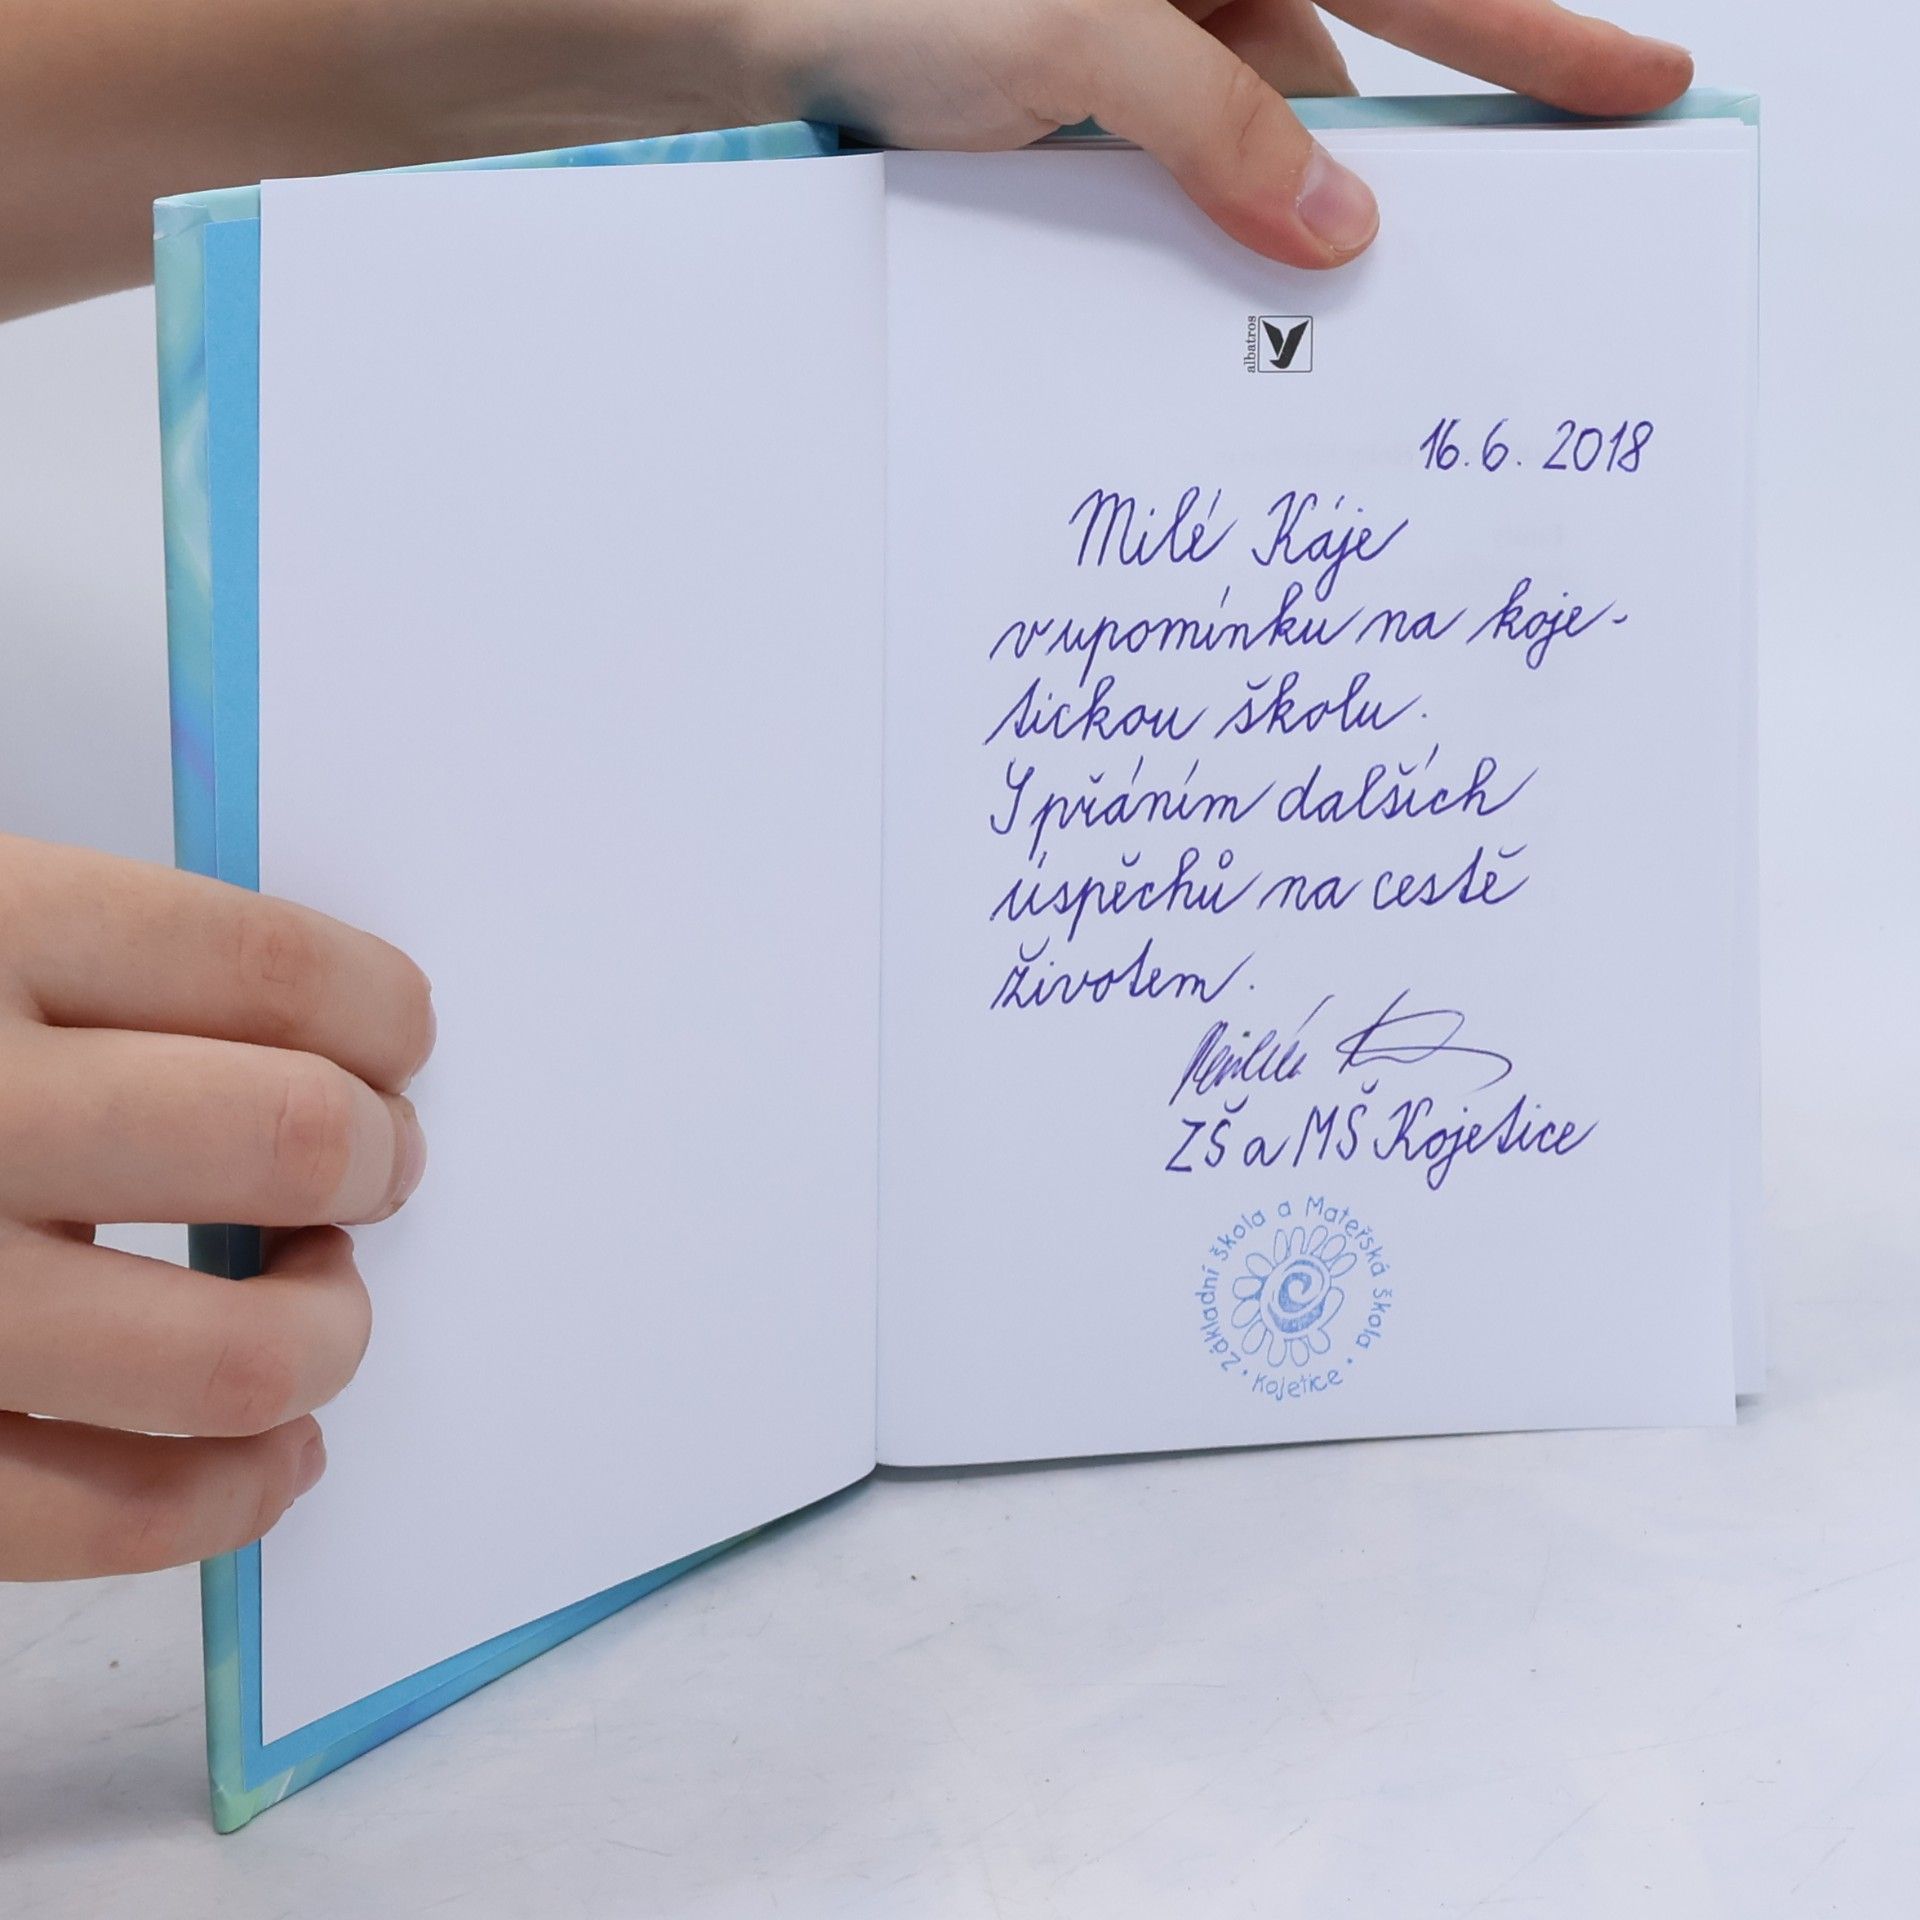 albatros
16. 6. 2018
Milé Káje
v upomínku na koje-
tickou školu.
S přáním dalších
úspěchů na cestě
životem.
ZŠ a MŠ Kojetice
Základní škola a Mateřská škola • Kojetice •